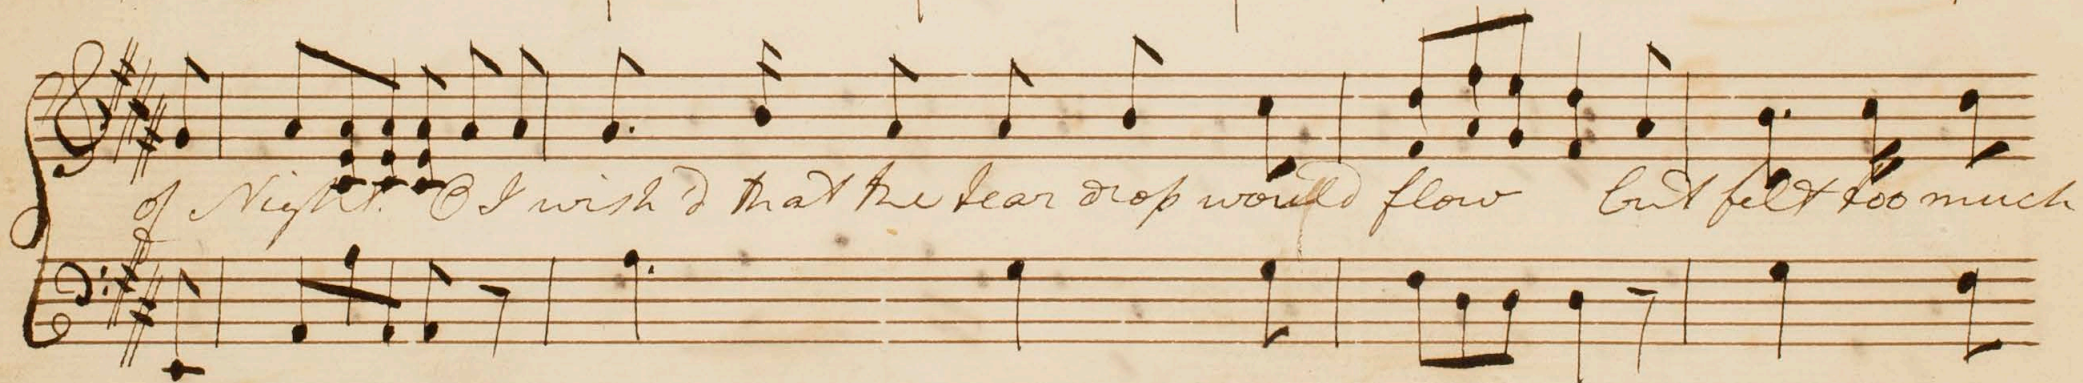 of Night. O I wish'd that the tear drop would flow but felt too much